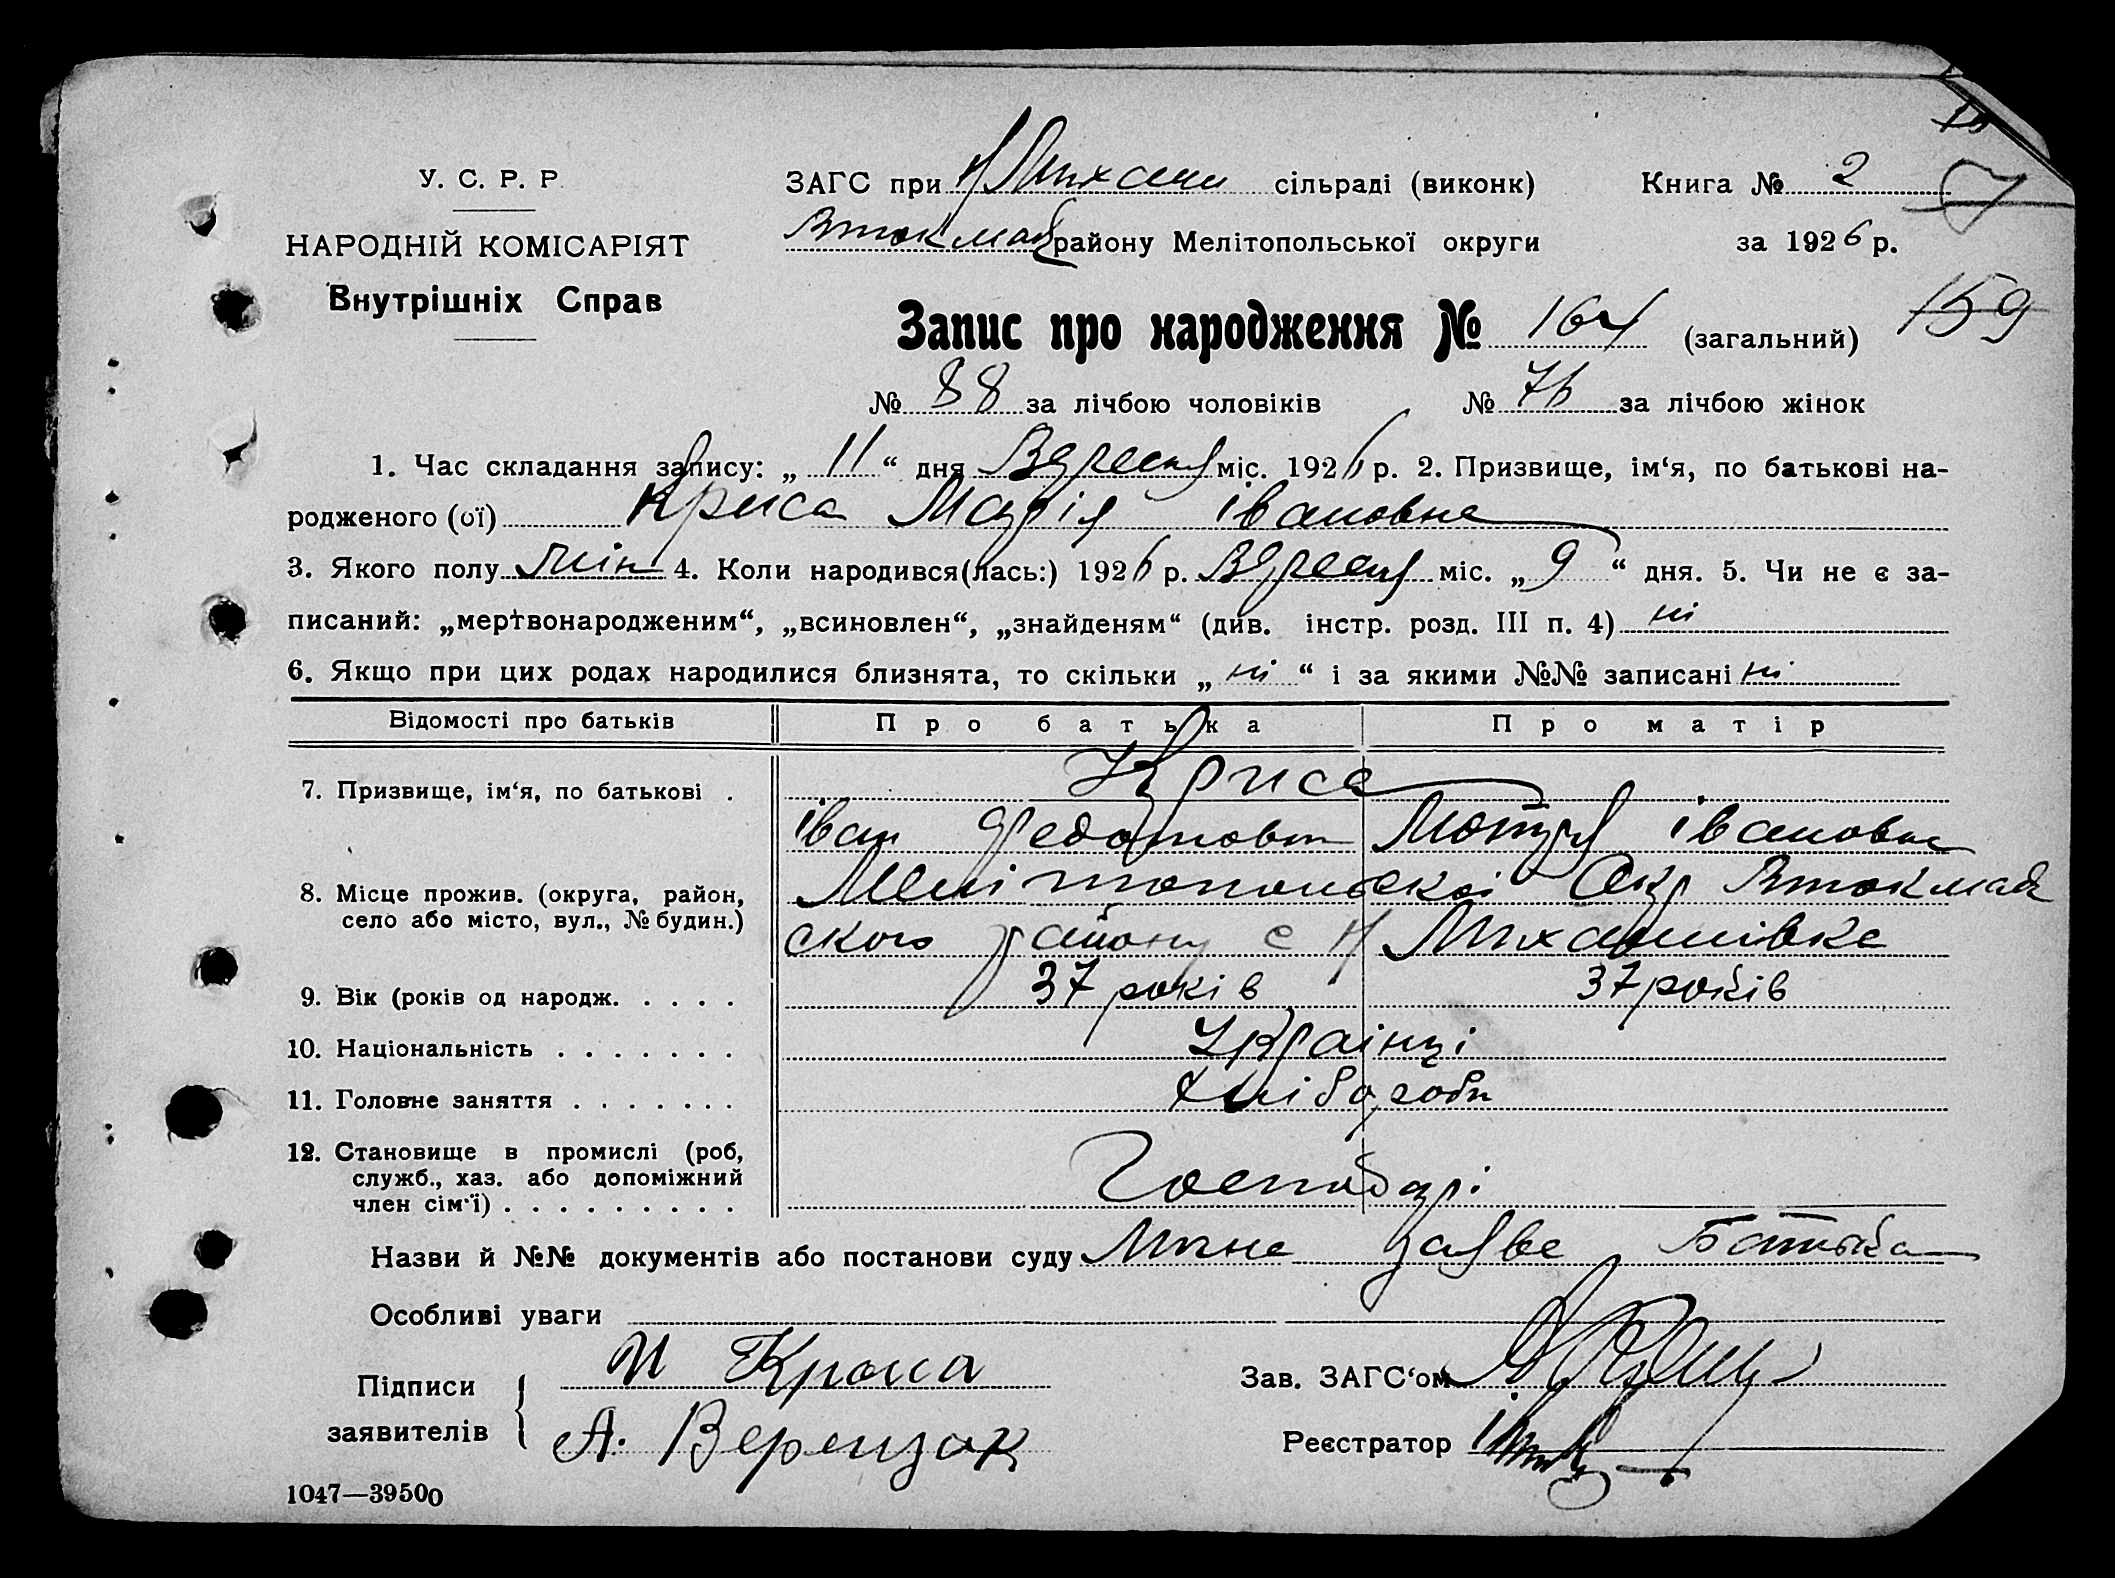 У. С. Р. Р.
НАРОДНІЙ КОМІСАРІЯТ
Внутрішніх Справ
ЗАГС при Н Михайли сільраді (виконк)
Втокмац району Мелітопольської округи
Книга № 2
за 1926 р.
7
Запис про народження № 164 (загальний)
159
№ 88 за лічбою чоловіків № 76 за лічбою жінок
1. Час складання запису: „ 11 “ дня Вересня міс. 1926 р. 2. Призвище, ім‘я, по батькові на-
родженого (ої) Криса Марія Івановна
3. Якого полу жін 4. Коли народився(лась:) 1926 р. Вересня міс. „ 9 “ дня. 5. Чи не є за-
писаний: „мертвонародженим“, „всиновлен“, „знайденям“ (див. інстр. розд. III п. 4) ні
6. Якщо при цих родах народилися близнята, то скільки „ ні “ і за якими №№ записані ні
Відомості про батьків Про батька Про матір
7. Призвище, ім‘я, по батькові . Криса
Іван Федотович Мотря Івановна
8. Місце прожив. (округа, район, село або місто, вул., № будин.) Мелітопольскої Окр Втокмац
ского району с Н Михайлівка
9. Вік (років од народж. . . . . 37 років 37 років
10. Національність . . . . . . . Українці
11. Головне заняття . . . . . . . Хлібороби
12. Становище в промислі (роб,
служб., хаз. або допоміжний
член сім‘ї) . . . . . . . . . Господарі
Назви й №№ документів або постанови суду заяве Батька
Особливі уваги
Підписи
заявителів
И Криса
А. Верещак
Зав. ЗАГС‘ом
Реєстратор
1047—39500